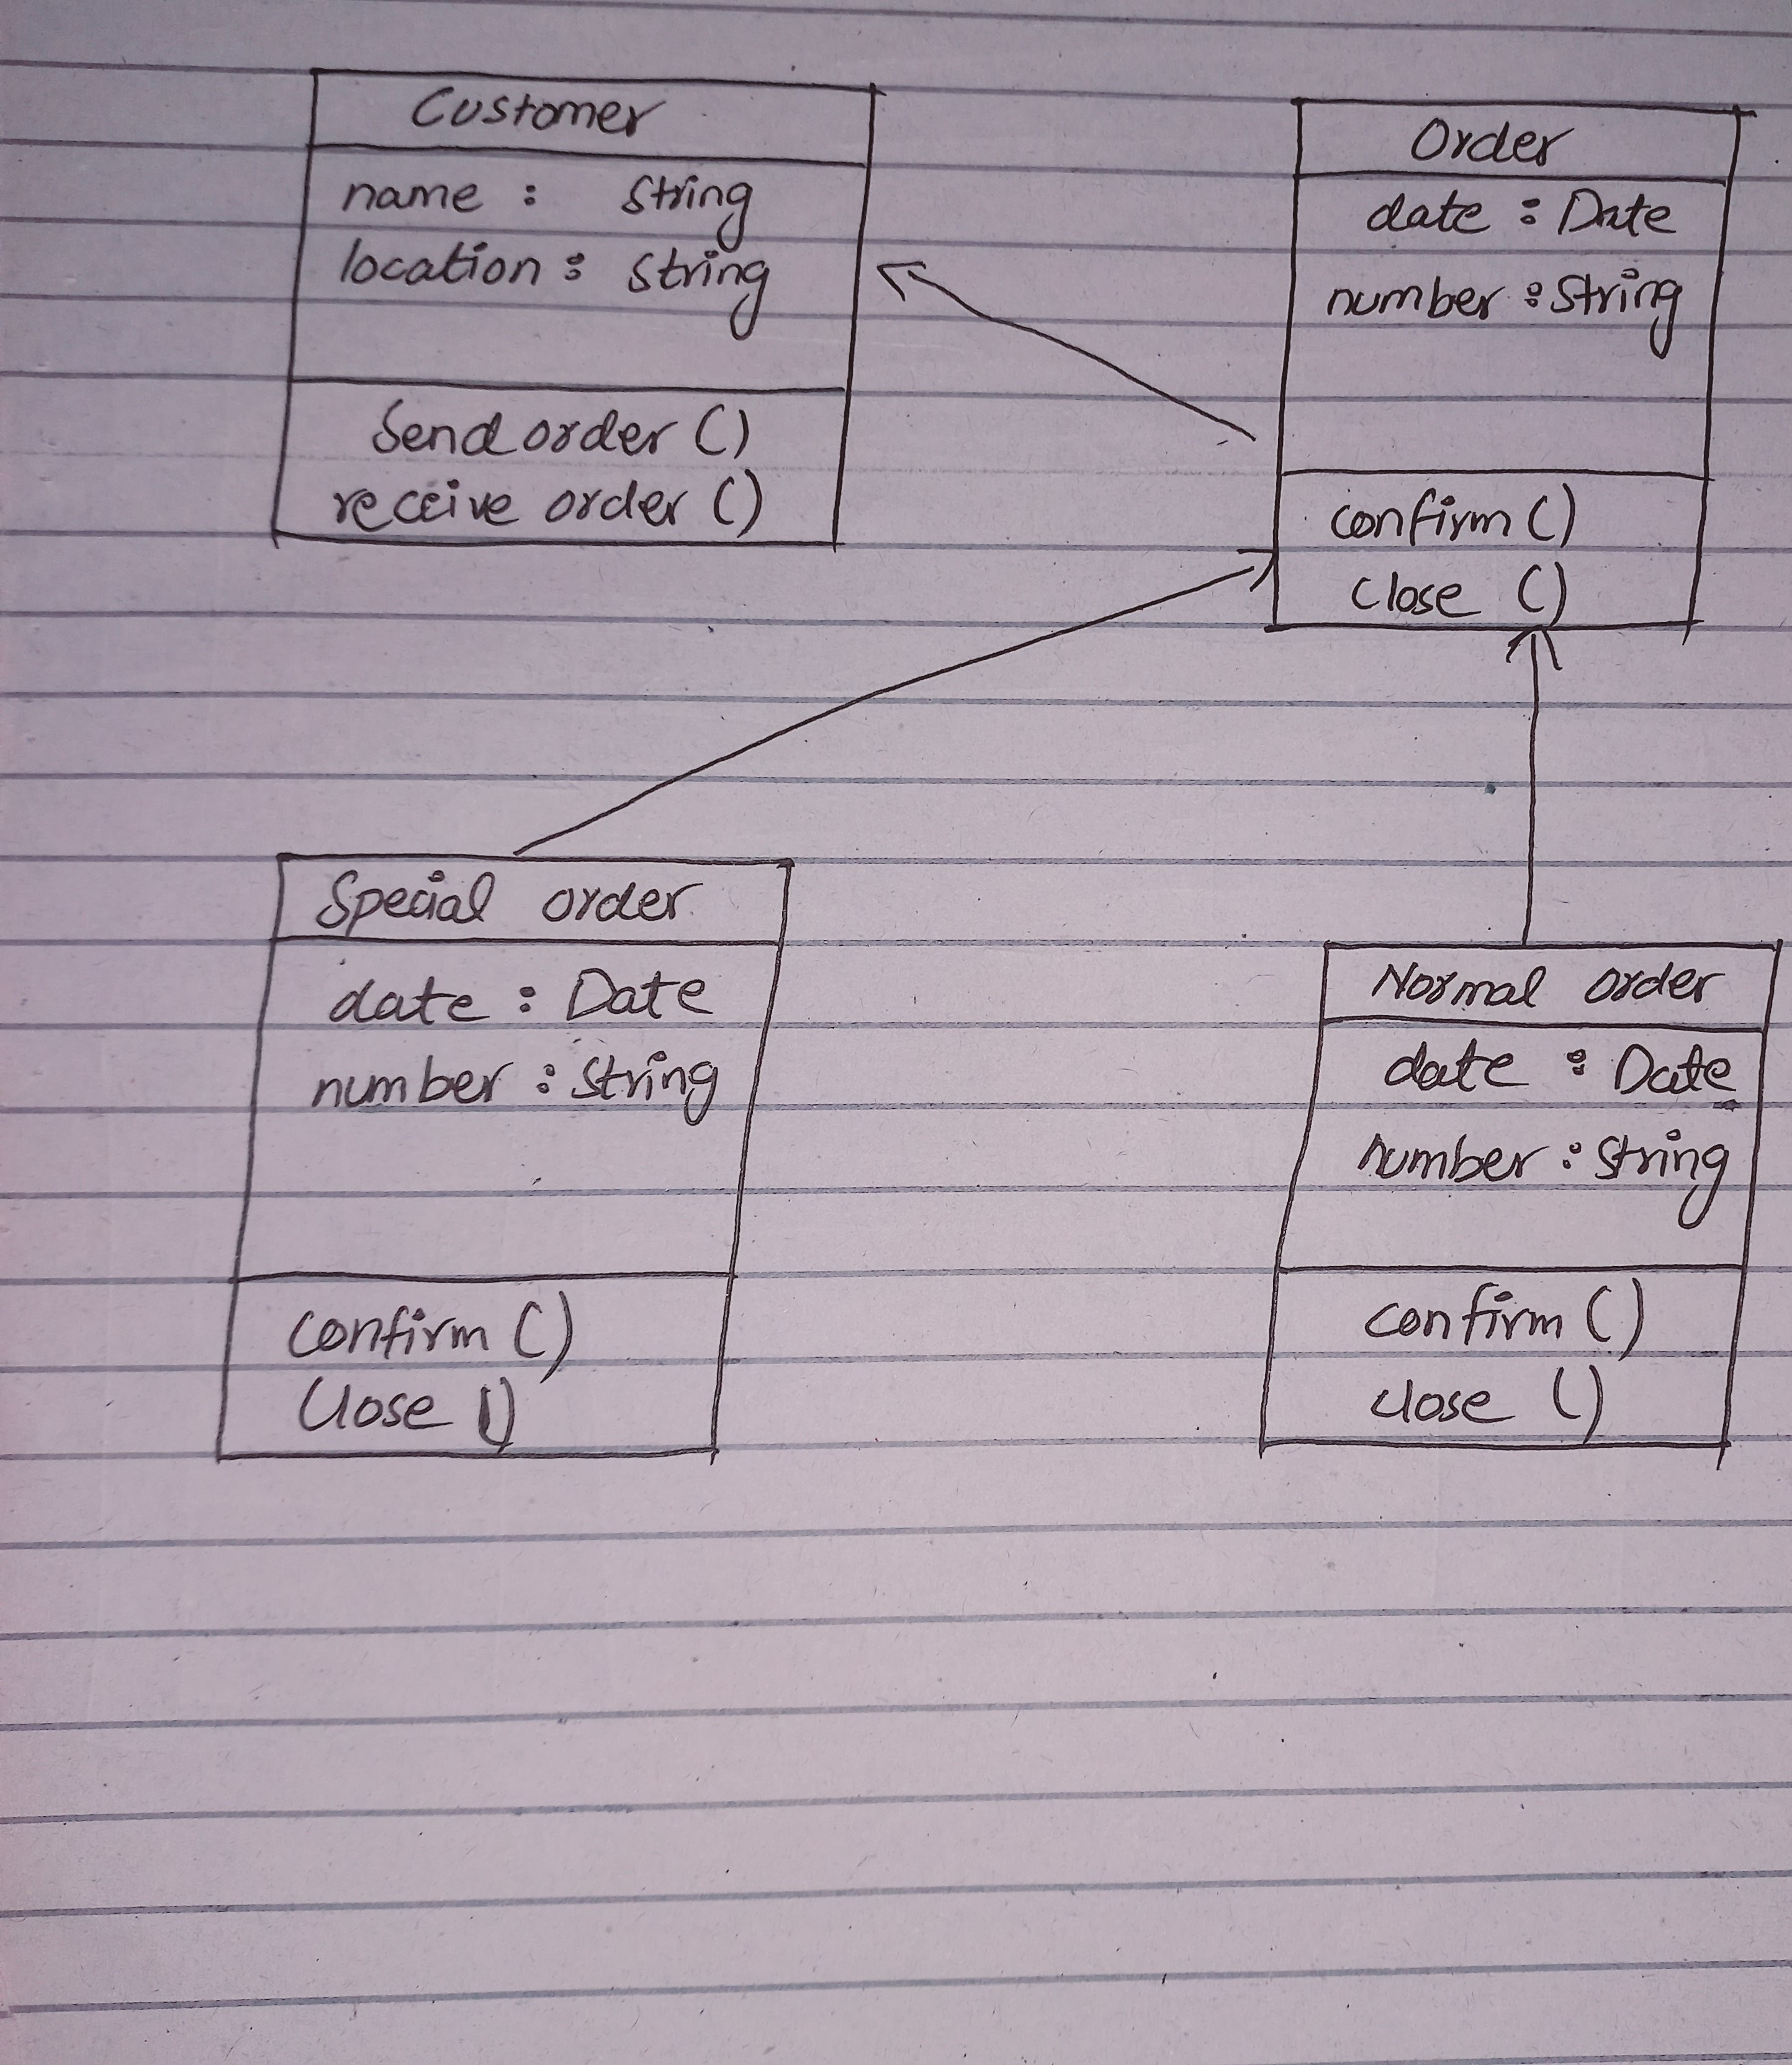 Customer
name : String
location : String
Send order ()
receive order ()
Order
date : Date
number : String
confirm ()
close ()
Special order
date : Date
number : String
confirm ()
Close ()
Normal order
date : Date
number : String
confirm ()
close ()